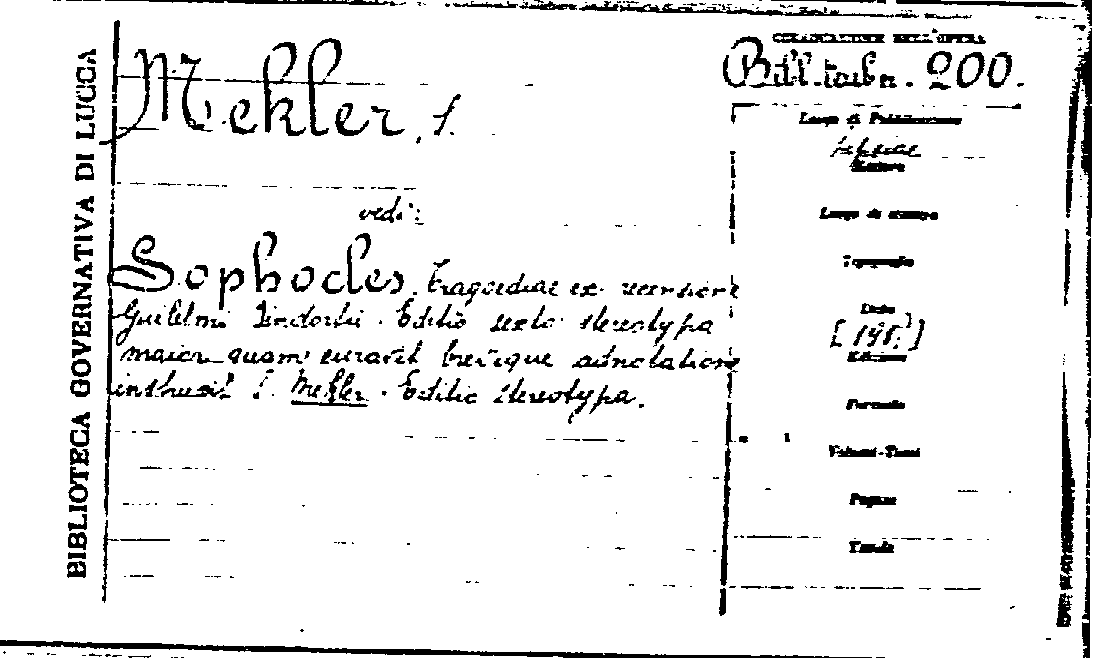 BIBLIOTECA GOVERNATIVA DI LUCCA
COLLOCAZIONE DELL'OPERA
Mekler, S.
vedi:
Sophocles. Tragoediae ex recensione
Guilelmi Dindorfii. Editio sexta stereotypa
maior quam curavit brevique adnotatione
inthusit S. Mekler. Editio stereotypa.
200.
Luogo di Pubblicazione
Lipsiae
Editore
Luogo di stampa
Tipografia
Data
Edizione
Formato
Volumi-Tomi
Pagine
Tavole